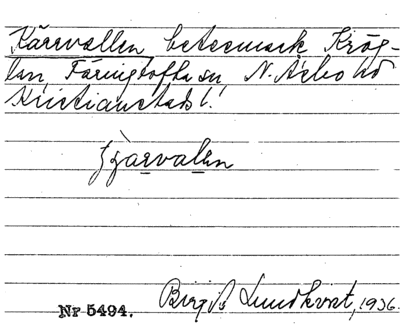 Kärrvallen betesmark Krög-
len, Färingtofta sn, N. Åsbo hd
Kristianstads l.
Nr 5494. Birgit Lundkvist, 1936.